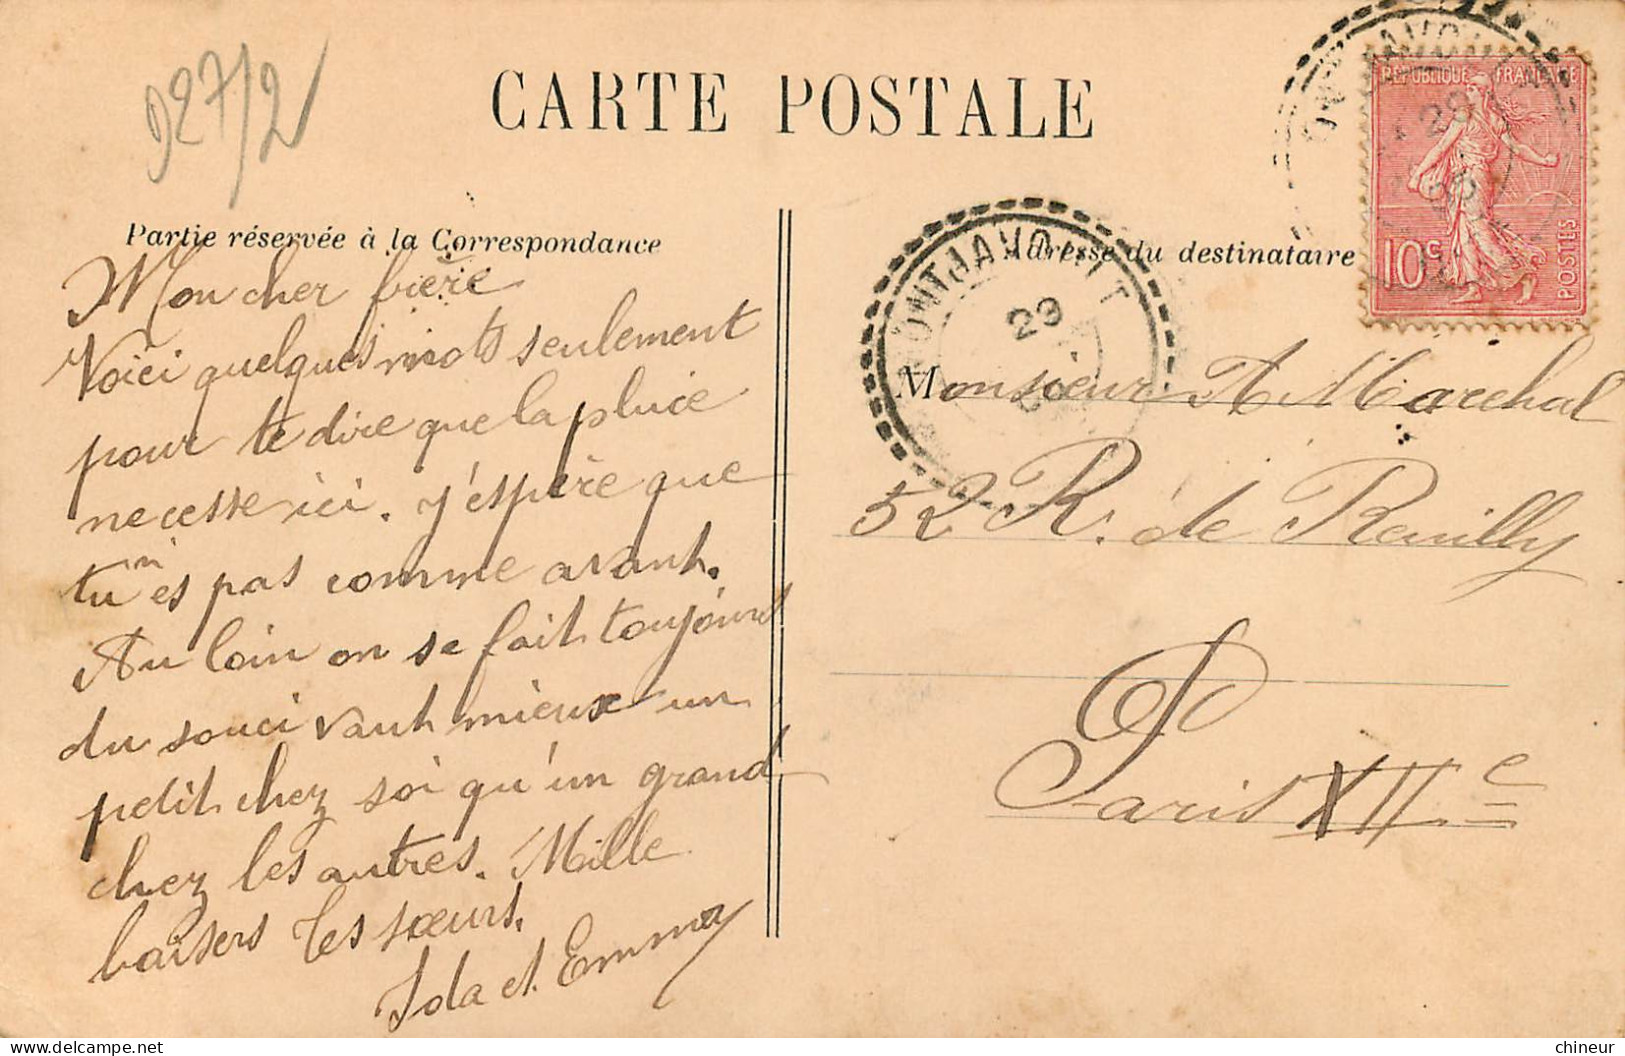 927/2
CARTE POSTALE
Partie réservée à la Correspondance
Adresse du destinataire
REPUBLIQUE FRANÇAISE
10c
POSTES
28
MONTJAVOULT
29
Mon cher frère
Voici quelques mots seulement
pour te dire que la pluie
ne cesse ici. J'espère que
tu n'es pas comme avant.
Au loin on se fait toujours
du souci vaut mieux un
petit chez soi qu'un grand
chez les autres. Mille
baisers Tes sœurs.
Ida et Emma
Monsieur A Marechal
52 R. de Reuilly
Paris XIIe
chineur